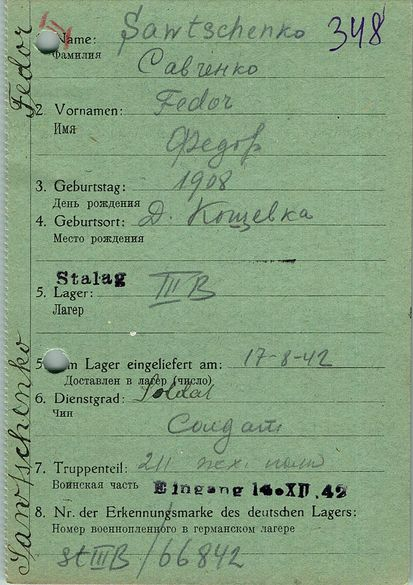 348
1. Name: Sawtschenko
Фамилия Савченко
2 Vornamen: Fedor
Имя Федор
3. Geburtstag: 1908
День рождения
4. Geburtsort: Д. Кощевка
Место рождения
Stalag
5. Lager: III B
Лагер
5 Im Lager eingeliefert am: 17-8-42
Доставлен в лагер (число)
6. Dienstgrad: Soldat
Чин Солдат
7. Truppenteil: 211 пех. полк
Воинская часть Eingang 14.XII.42
8. Nr. der Erkennungsmarke des deutschen Lagers:
Номер военнопленного в германском лагере
St III B / 66842
Sawtschenko Fedor